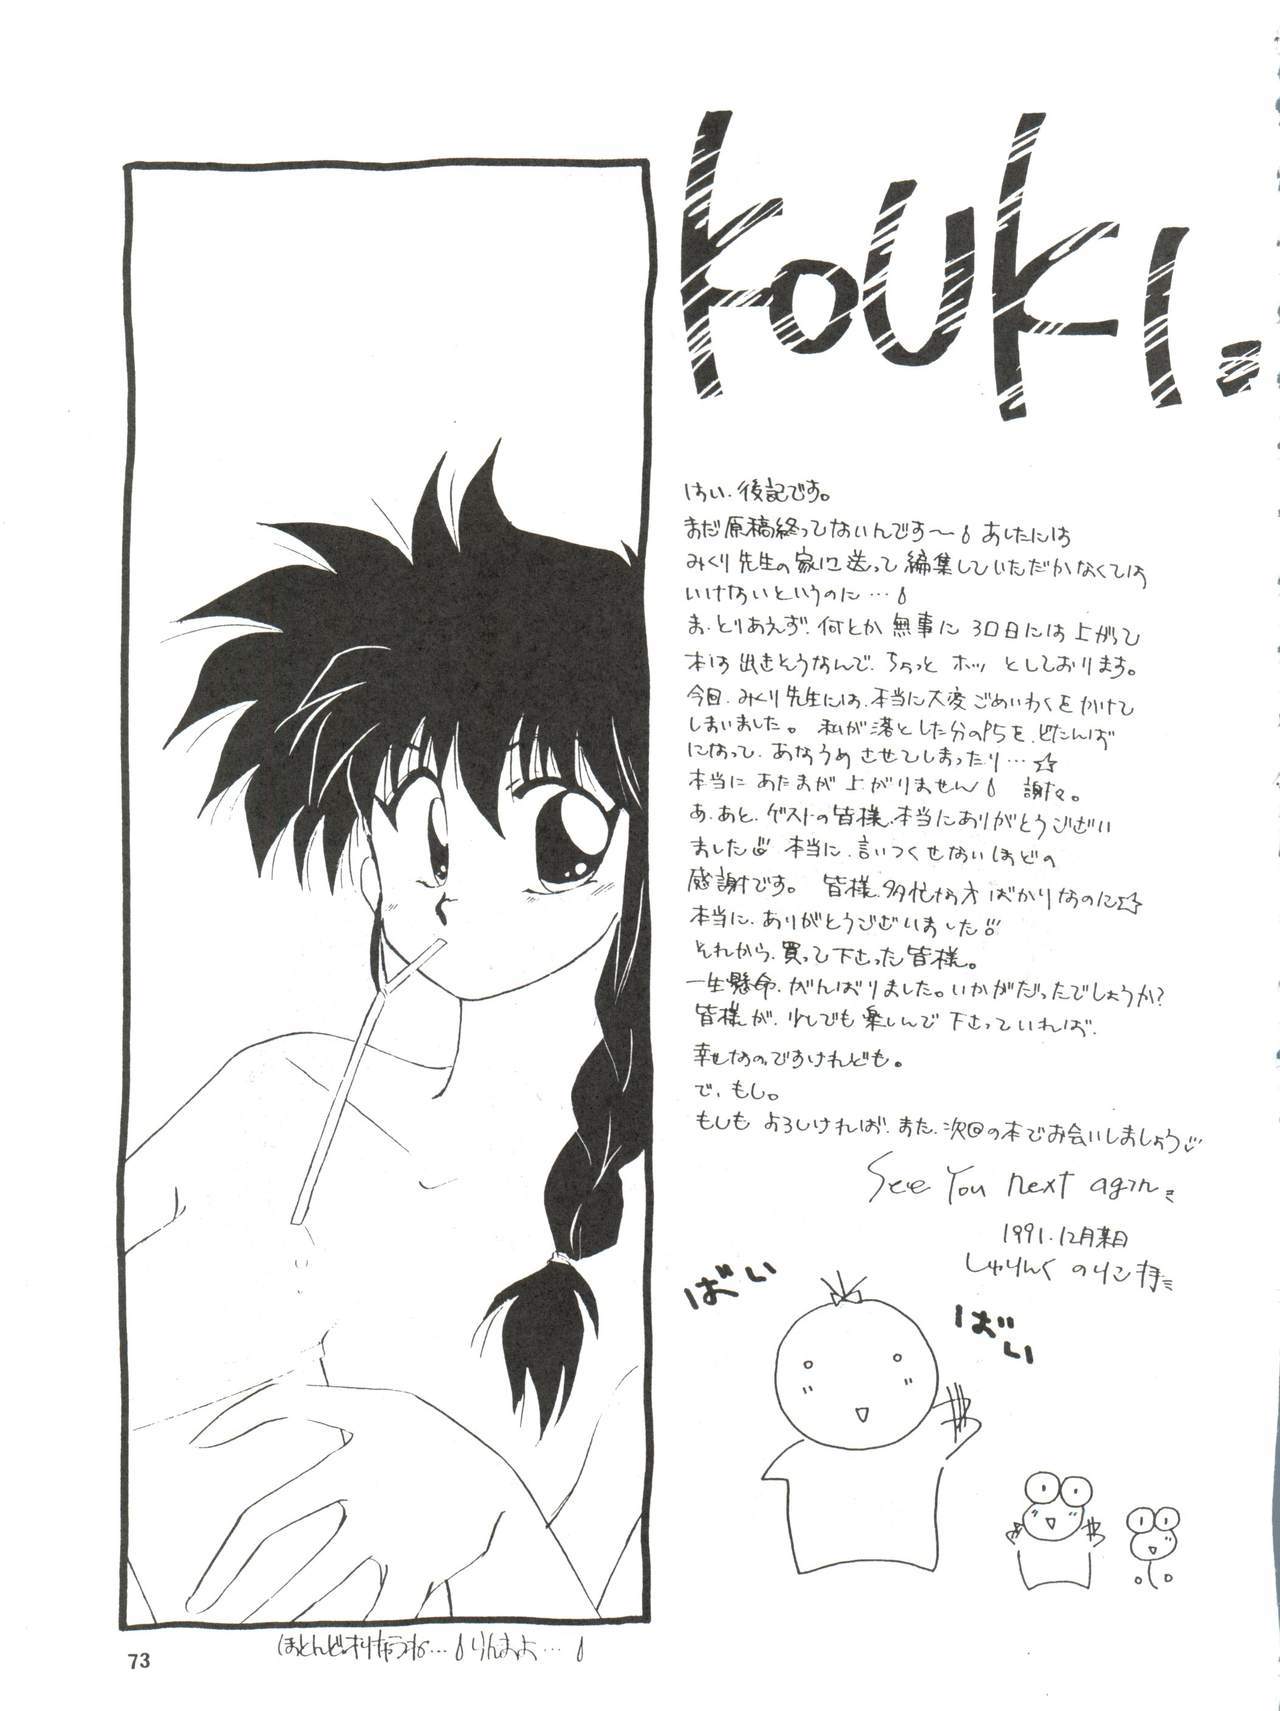 KOUKI.
はい、後記です。
まだ原稿終ってないんです〜 あしたには
みくり先生の家に送って編集していただかなくては
いけないというのに…
ま、とりあえず、何とか無事に30日には上がって
本は出きそうなんで、ちょっとホッとしております。
今回、みくり先生には、本当に大変ごめいわくをかけて
しまいました。私が落とした分のP5を、どたんば
になって、あなうめさせてしまったり…☆
本当にあたまが上がりません 謝々。
あ、あと、ゲストの皆様、本当にありがとうござい
ました 本当に、言いつくせないほどの
感謝です。皆様、多忙な方ばかりなのに☆
本当に、ありがとうございました!!
それから、買って下さった皆様。
一生懸命、がんばりました。いかがだったでしょうか?
皆様が、少しでも楽しんで下さっていれば、
幸せなのですけれども。
で、もし。
もしもよろしければ、また、次回の本でお会いしましょう
See You next again
1991.12月末日
しゅりんくのりこ
ばい
ばい
ほとんどオリキャラね…らんまよ…
73